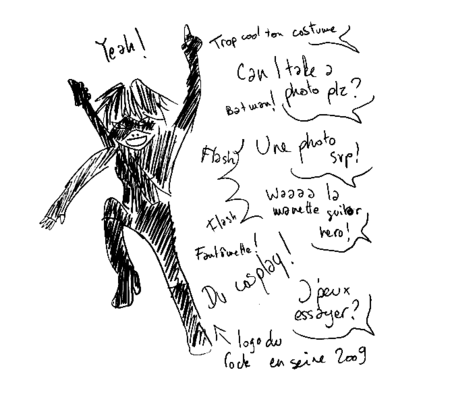 Yeah!
Trop cool ton costume
Can I take a
photo plz?
Batman!
Flash
Une photo
svp!
Flash
Waaaa la
manette guitar
hero!
Fantômette!
Du cosplay!
J'peux
essayer?
logo du
rock en seine 2009